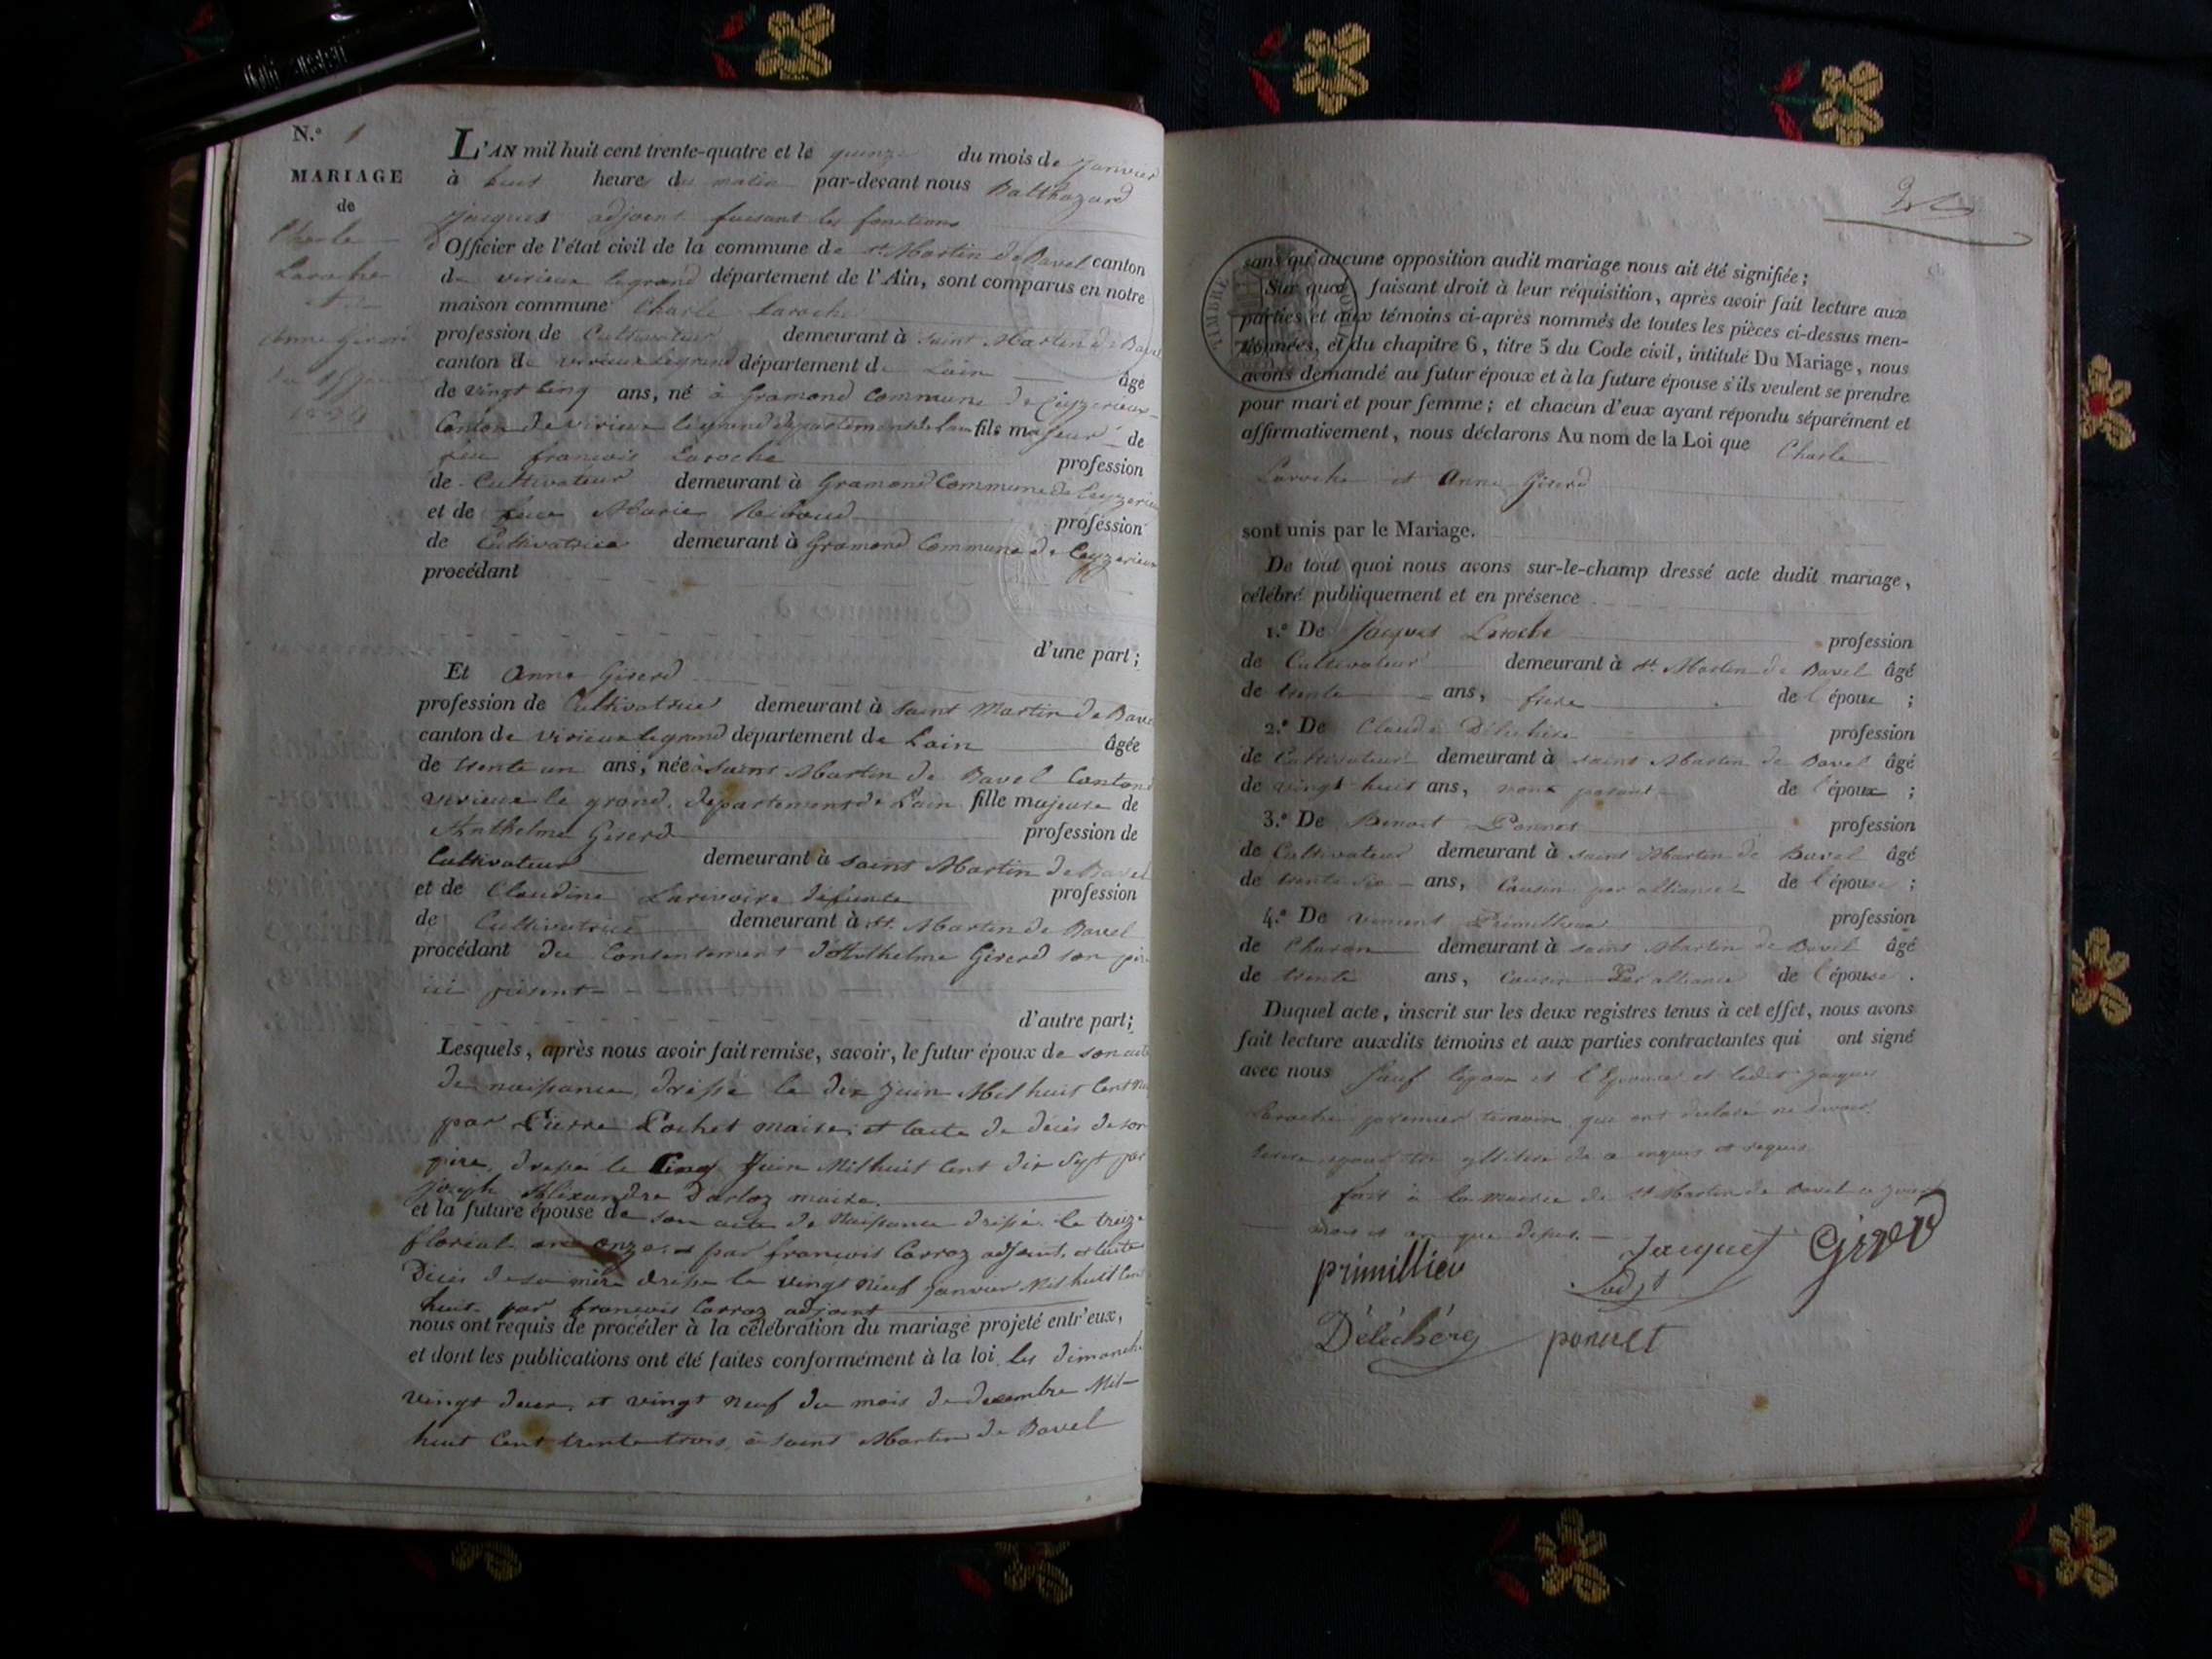 N.º 1
MARIAGE
de
Charle
Laroche
et
Anne Girerd
du 15 Janvier
1834
L'AN mil huit cent trente-quatre et le quinze du mois de Janvier
à huit heures du matin par-devant nous Balthazard
Jacquet adjoint faisant les fonctions
d'Officier de l'état civil de la commune de st Martin de Bavel canton
de virieux legrand département de l'Ain, sont comparus en notre
maison commune Charle Laroche
profession de Cultivateur demeurant à saint Martin de Bavel
canton de virieux legrand département de Lain âgé
de vingt cinq ans, né à Gramond Commune de Ceyzerieux
Canton de virieux legrand département de Lain fils majeur de
feu francois Laroche profession
de Cultivateur demeurant à Gramond Commune de Ceyzerieux
et de feue Marie profession
de Cultivatrice demeurant à Gramond Commune de Ceyzerieux
procédant
d'une part;
Et Anne Girerd
profession de Cultivatrice demeurant à saint Martin de Bavel
canton de virieux legrand département de Lain âgée
de trente un ans, née à saint Martin de Bavel Canton
virieux le grand département de Lain fille majeure de
Anthelme Girerd profession de
Cultivateur demeurant à saint Martin de Bavel
et de Claudine Larivoire défunte profession
de Cultivatrice demeurant à st. Martin de Bavel
procédant du Consentement d'Anthelme Girerd son père
ici présent
d'autre part;
Lesquels, après nous avoir fait remise, savoir, le futur époux de son acte
de naissance, dressé le dix Juin Mil huit Cent
par Pierre Pochet maire, et lacte de décès de son
père, dressé le Cinq Juin Mil huit Cent dix Sept par
Joseph Alexandre Darloz maire.
et la future épouse de son acte de Naissance dressé le treize
floréal an onze par francois Carraz adjoint, et lacte
Décès de sa mère dressé le vingt Neuf Janvier Mil huit Cent
huit par francois Carraz adjoint
nous ont requis de procéder à la célébration du mariage projeté entr'eux,
et dont les publications ont été faites conformément à la loi les dimanche
vingt deux et vingt Neuf du mois de decembre Mil
huit Cent trente trois, à saint Martin de Bavel
TIMBRE
sans qu'aucune opposition audit mariage nous ait été signifiée;
Sur quoi faisant droit à leur réquisition, après avoir fait lecture aux
parties et aux témoins ci-après nommés de toutes les pièces ci-dessus men-
tionnées, et du chapitre 6, titre 5 du Code civil, intitulé Du Mariage, nous
avons demandé au futur époux et à la future épouse s'ils veulent se prendre
pour mari et pour femme; et chacun d'eux ayant répondu séparément et
affirmativement, nous déclarons Au nom de la Loi que Charle
Laroche et Anne Girerd
sont unis par le Mariage.
De tout quoi nous avons sur-le-champ dressé acte dudit mariage,
célébré publiquement et en présence
1.º De Jacques Laroche profession
de Cultivateur demeurant à st. Martin de Bavel âgé
de trente ans, frère de l'époux ;
2.º De Claude profession
de Cultivateur demeurant à saint Martin de Bavel âgé
de vingt huit ans, non parent de l'époux ;
3.º De Benoit Ponnet profession
de Cultivateur demeurant à saint Martin de Bavel âgé
de trente six ans, Cousin par alliance de l'épouse ;
4.º De vincent Primillieu profession
de Charon demeurant à saint Martin de Bavel âgé
de trente ans, Cousin Par alliance de l'épouse .
Duquel acte, inscrit sur les deux registres tenus à cet effet, nous avons
fait lecture auxdits témoins et aux parties contractantes qui ont signé
avec nous Sauf lépoux et l'Epouse et ledit Jacques
Laroche premier temoin qui ont declaré ne savoir
de ce enquis et requis.
fait à la mairie de St Martin de Bavel ce jour
mois et an que dessus.
primillieu Jacquet Girerd
adjt
Déléchére ponnet